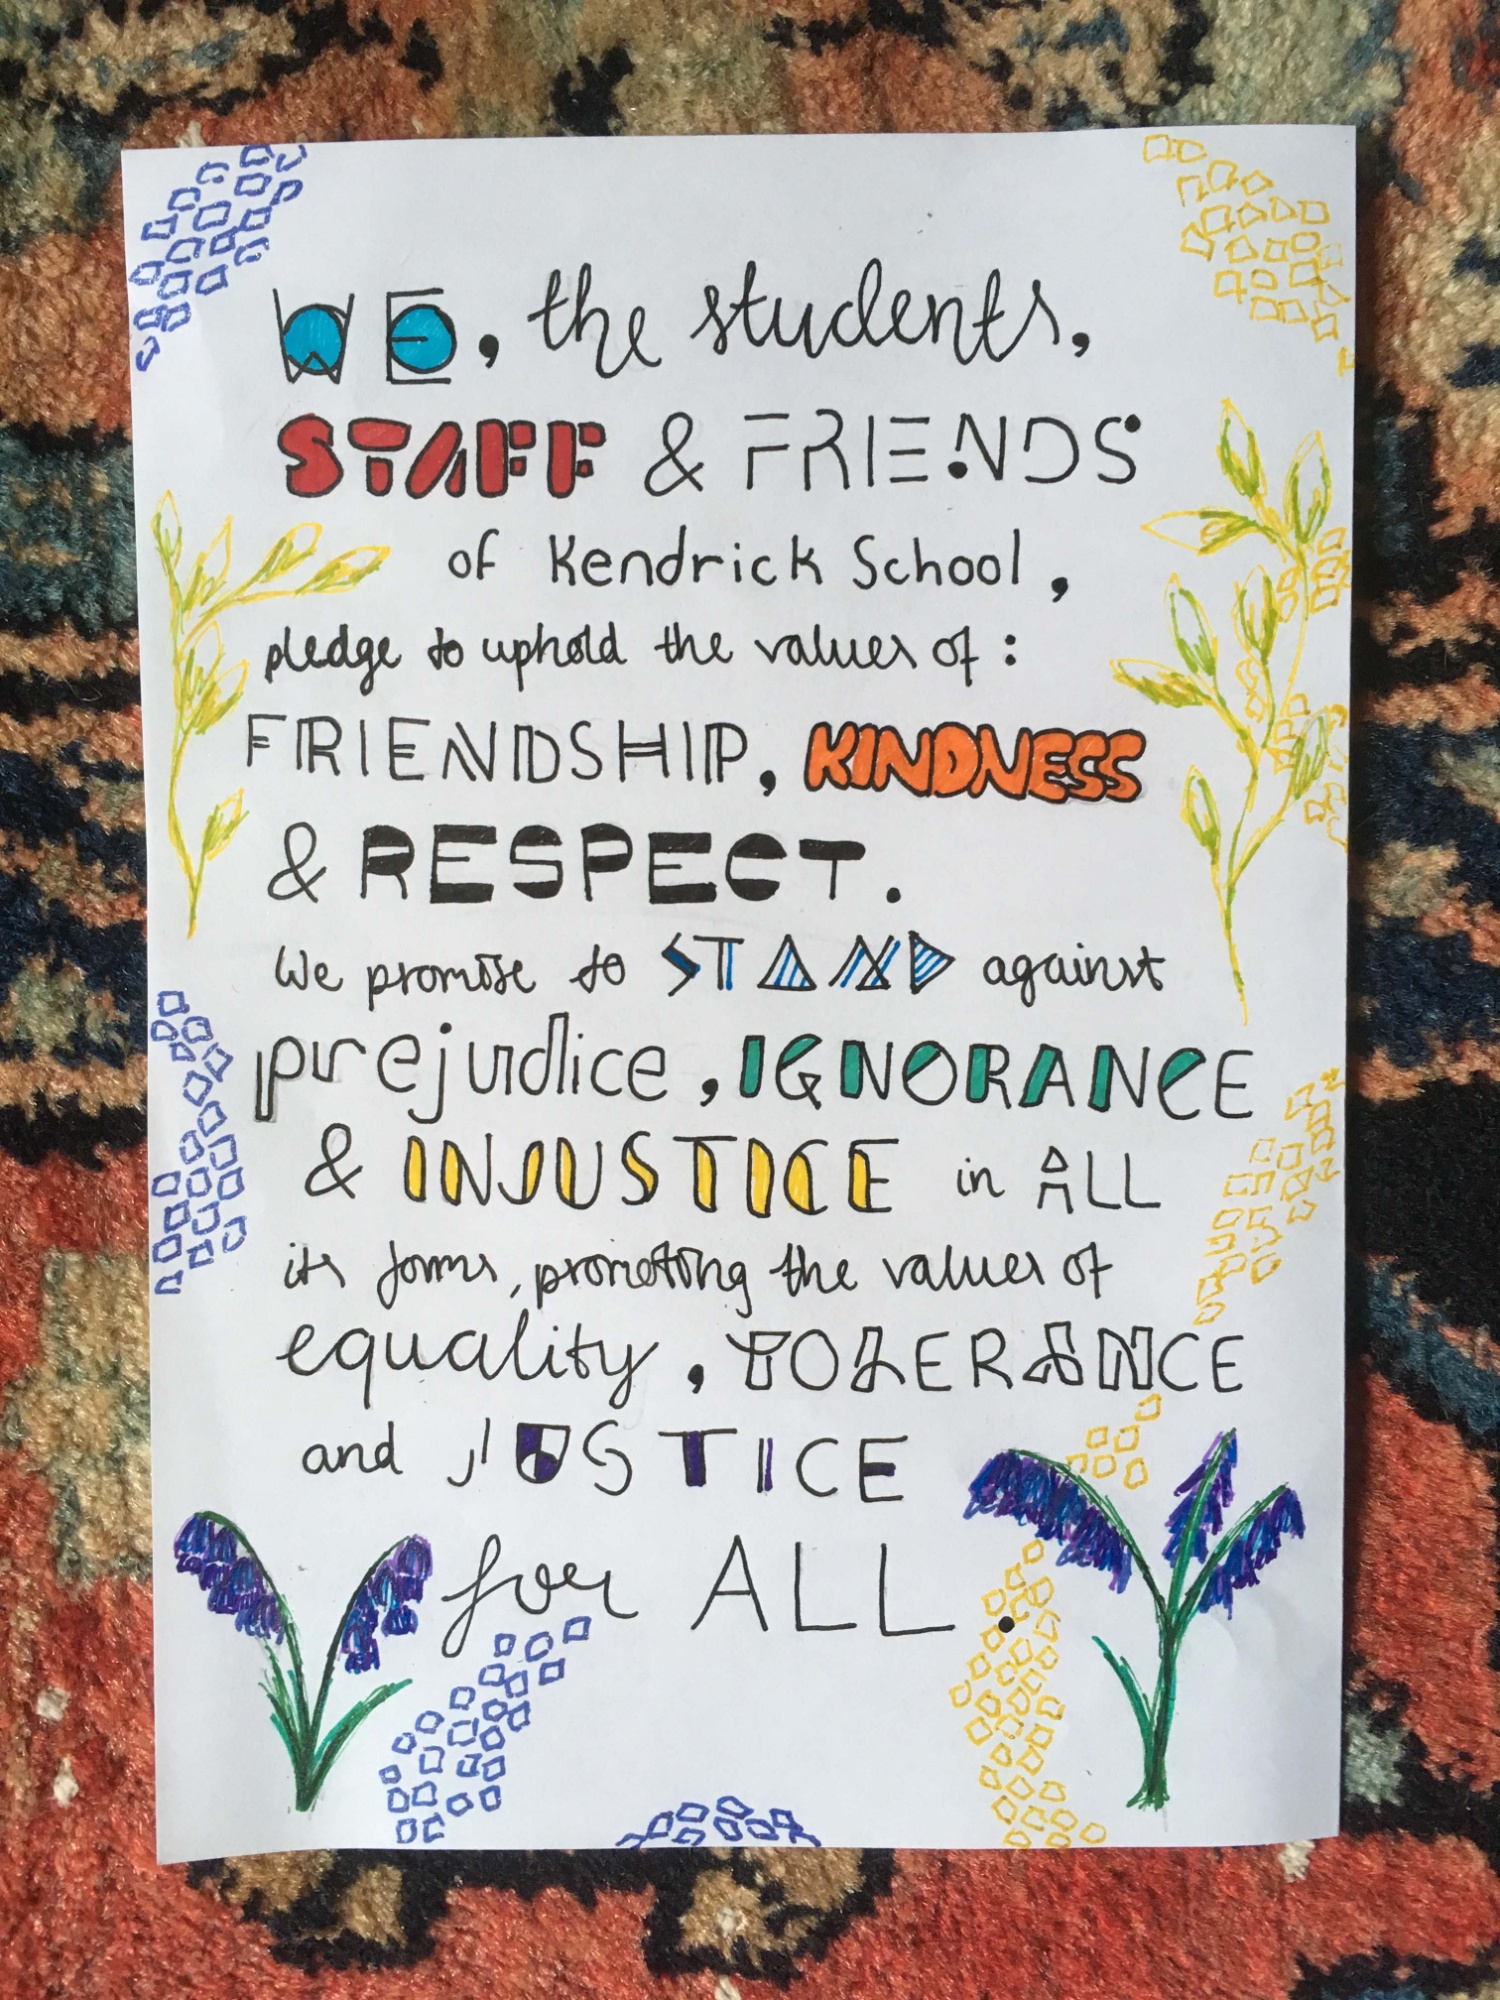 WE, the students,
STAFF & FRIENDS
of Kendrick School,
pledge to uphold the values of :
FRIENDSHIP, KINDNESS
& RESPECT.
We promise to STAND against
prejudice, IGNORANCE
& INJUSTICE in ALL
its forms, promoting the values of
equality, TOLERANCE
and JUSTICE
for ALL.